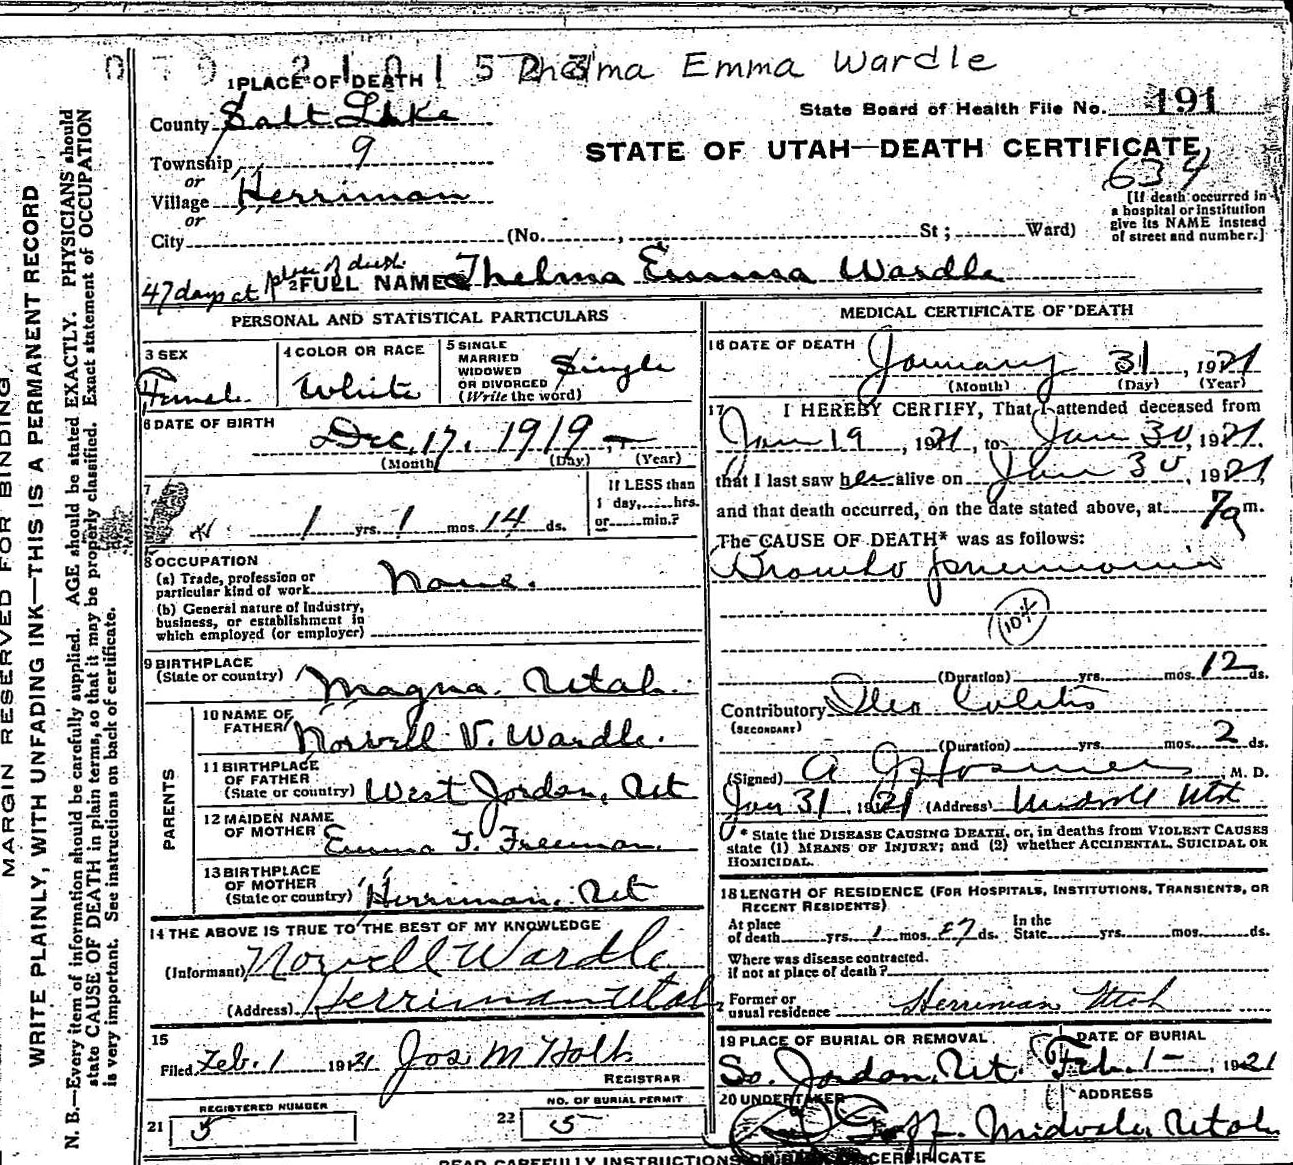 Thelma Emma Wardle
1 PLACE OF DEATH
County Salt Lake
State Board of Health File No. 191
Township 9
STATE OF UTAH—DEATH CERTIFICATE
634
or
Village Herriman
or
[If death occurred in
a hospital or institution
give its NAME instead
of street and number.]
City (No. , St ; Ward)
47 days at place of death
2 FULL NAME Thelma Emma Wardle
PERSONAL AND STATISTICAL PARTICULARS
3 SEX
Female
4 COLOR OR RACE
White
5 SINGLE
MARRIED
WIDOWED
OR DIVORCED
(Write the word)
Single
6 DATE OF BIRTH
Dec. 17, 1919
(Month) (Day) (Year)
7
1 yrs. 1 mos. 14 ds.
If LESS than
1 day, hrs.
or min.?
8 OCCUPATION
(a) Trade, profession or
particular kind of work None.
(b) General nature of Industry,
business, or establishment in
which employed (or employer)
9 BIRTHPLACE
(State or country) Magna. Utah.
PARENTS
10 NAME OF
FATHER Norvell V. Wardle.
11 BIRTHPLACE
OF FATHER
(State or country) West Jordan, Ut
12 MAIDEN NAME
OF MOTHER Emma T. Freeman.
13 BIRTHPLACE
OF MOTHER
(State or country) Herriman, Ut
14 THE ABOVE IS TRUE TO THE BEST OF MY KNOWLEDGE
(Informant) Norvell Wardle
(Address) Herriman Utah
15
Filed Feb. 1 1921 Jos M Holt
REGISTRAR
REGISTERED NUMBER
21 5
NO. OF BURIAL PERMIT
22 5
MEDICAL CERTIFICATE OF DEATH
16 DATE OF DEATH
January 31, 1921
(Month) (Day) (Year)
17 I HEREBY CERTIFY, That I attended deceased from
Jan 19, 1921, to Jan 30, 1921.
that I last saw her alive on Jan 30, 1921,
and that death occurred, on the date stated above, at 7a m.
The CAUSE OF DEATH* was as follows:
Broncho pneumonia
(Duration) yrs. mos. 12 ds.
Contributory Ileo Colitis
(SECONDARY)
(Duration) yrs. mos. 2 ds.
(Signed) A G Hosmer, M. D.
Jan 31, 1921 (Address) Midvale Utah
* State the DISEASE CAUSING DEATH, or, in deaths from VIOLENT CAUSES
state (1) MEANS OF INJURY; and (2) whether ACCIDENTAL, SUICIDAL OR
HOMICIDAL.
18 LENGTH OF RESIDENCE (FOR HOSPITALS, INSTITUTIONS, TRANSIENTS, OR
RECENT RESIDENTS)
At place
of death yrs. 1 mos. 27 ds. In the
State yrs. mos. ds.
Where was disease contracted.
if not at place of death?
Former or
usual residence Herriman Utah
19 PLACE OF BURIAL OR REMOVAL
So. Jordan, Ut.
DATE OF BURIAL
Feb. 1 - , 1921
20 UNDERTAKER
Goff.
ADDRESS
Midvale, Utah
READ CAREFULLY INSTRUCTIONS ON BACK OF CERTIFICATE
MARGIN RESERVED FOR BINDING
WRITE PLAINLY, WITH UNFADING INK—THIS IS A PERMANENT RECORD
N. B.—Every item of information should be carefully supplied. AGE should be stated EXACTLY. PHYSICIANS should
state CAUSE OF DEATH in plain terms, so that it may be properly classified. Exact statement of OCCUPATION
is very important. See instructions on back of certificate.